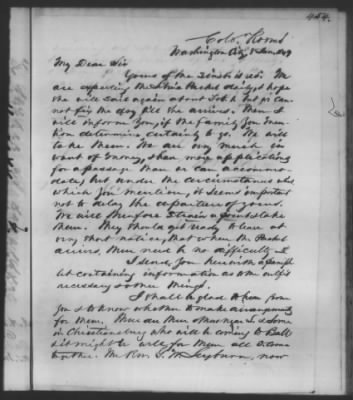 464.
Colo. Rooms
Washington City, 8 Jan. 1849
My Dear Sir
Yours of the inst. is recd. We
are expecting the Packet daily & hope
she will sail again about but you can
not fix the day till she arrives. Then I
will inform you, if the family you men
tion determine certainly to go. We will
take them. We are very much in
want of money, & have more applications
for a passage than we can accommo
date, but under the circumstances
which you mention, it seems important
not to delay the departure of yours.
We will therefore & take
them. They should get ready to leave at
very short notice, that when the Packet
arrives, there need be no difficulty.
I send you herewith a pamph
let containing information as to outfits
necessary & other things.
I shall be glad to hear from
you & to know whether to make arrangements
for them. There are then some
in Christiansburg who will be coming to Balt
& it might be well for them all to come
together. The Rev. now